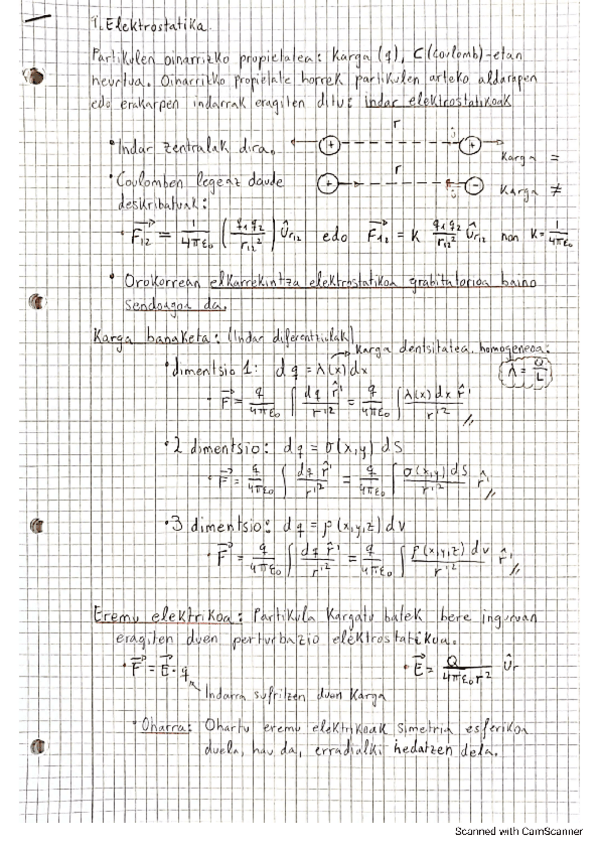 1. Elektrostatika.
Partikulen oinarrizko propietatea: Karga (q), C(coulomb)-etan
neurtua. Oinarrizko propietate horrek partikulen arteko aldarapen
edo erakarpen indarrak eragiten ditu: indar elektrostatikoak
• Indar zentralak dira.
r
+ +
Karga =
• Coulomben legeaz daude
r
+ -
Karga ≠
deskribatuak:
• F₁₂ = 1/4πε₀ (q₁q₂/r₁₂²) ûr₁₂ edo F₁₂ = K q₁q₂/r₁₂² ûr₁₂ non K = 1/4πε₀
• Orokorrean elkarrekintza elektrostatikoa grabitatorioa baino
sendoagoa da.
Karga banaketa: (Indar diferentzialak)
Karga dentsitatea. homogeneoa:
• dimentsio 1: dq = λ(x)dx
λ = Q/L
• F = q/4πε₀ ∫ dq r̂'/r'² = q/4πε₀ ∫ λ(x)dx r̂'/r'² //
• 2 dimentsio: dq = σ(x,y) dS
• F = q/4πε₀ ∫ dq r̂'/r'² = q/4πε₀ ∫ σ(x,y) dS/r'² r̂' //
• 3 dimentsio: dq = ρ(x,y,z) dv
• F = q/4πε₀ ∫ dq r̂'/r'² = q/4πε₀ ∫ ρ(x,y,z) dv/r'² r̂' //
Eremu elektrikoa: Partikula Kargatu batek bere inguruan
eragiten duen perturbazio elektrostatikoa.
• F = E · q
• E = Q/4πε₀r² ûr
Indarra sufritzen duen Karga
• Oharra: Ohartu eremu elektrikoak simetria esferikoa
duela, hau da, erradialki hedatzen dela.
Scanned with CamScanner